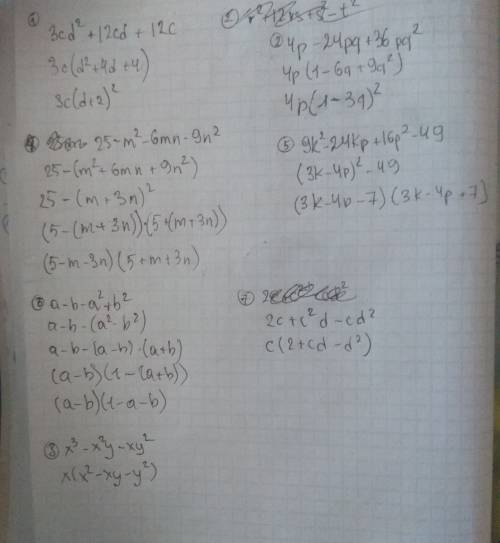 ① 3cd² + 12cd + 12c
3c(d² + 4d + 4)
3c(d+2)²
② 4p - 24pq + 36pq²
4p(1 - 6q + 9q²)
4p(1 - 3q)²
④ 25 - m² - 6mn - 9n²
25 - (m² + 6mn + 9n²)
25 - (m + 3n)²
(5 - (m + 3n))·(5 + (m + 3n))
(5 - m - 3n)(5 + m + 3n)
⑤ 9k² - 24kp + 16p² - 49
(3k - 4p)² - 49
(3k - 4p - 7)(3k - 4p + 7)
⑥ a - b - a² + b²
a - b - (a² - b²)
a - b - (a - b)·(a + b)
(a - b)(1 - (a + b))
(a - b)(1 - a - b)
⑦
2c + c²d - cd²
c(2 + cd - d²)
⑧ x³ - x²y - xy²
x(x² - xy - y²)